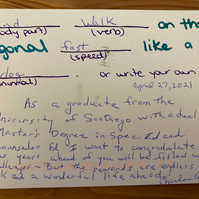 nd walk on th
body part) (verb)
gonal fast like a
(speed)
dog . or write your own
nimal) april 27, 2021
As a graduate from the
University of San Diego with a dual
Master's Degree in Spec Ed and
Counselor Ed I want to congratulate
years ahead of you will be filled w
- But the rewards are endless
a wonderful life ahead!